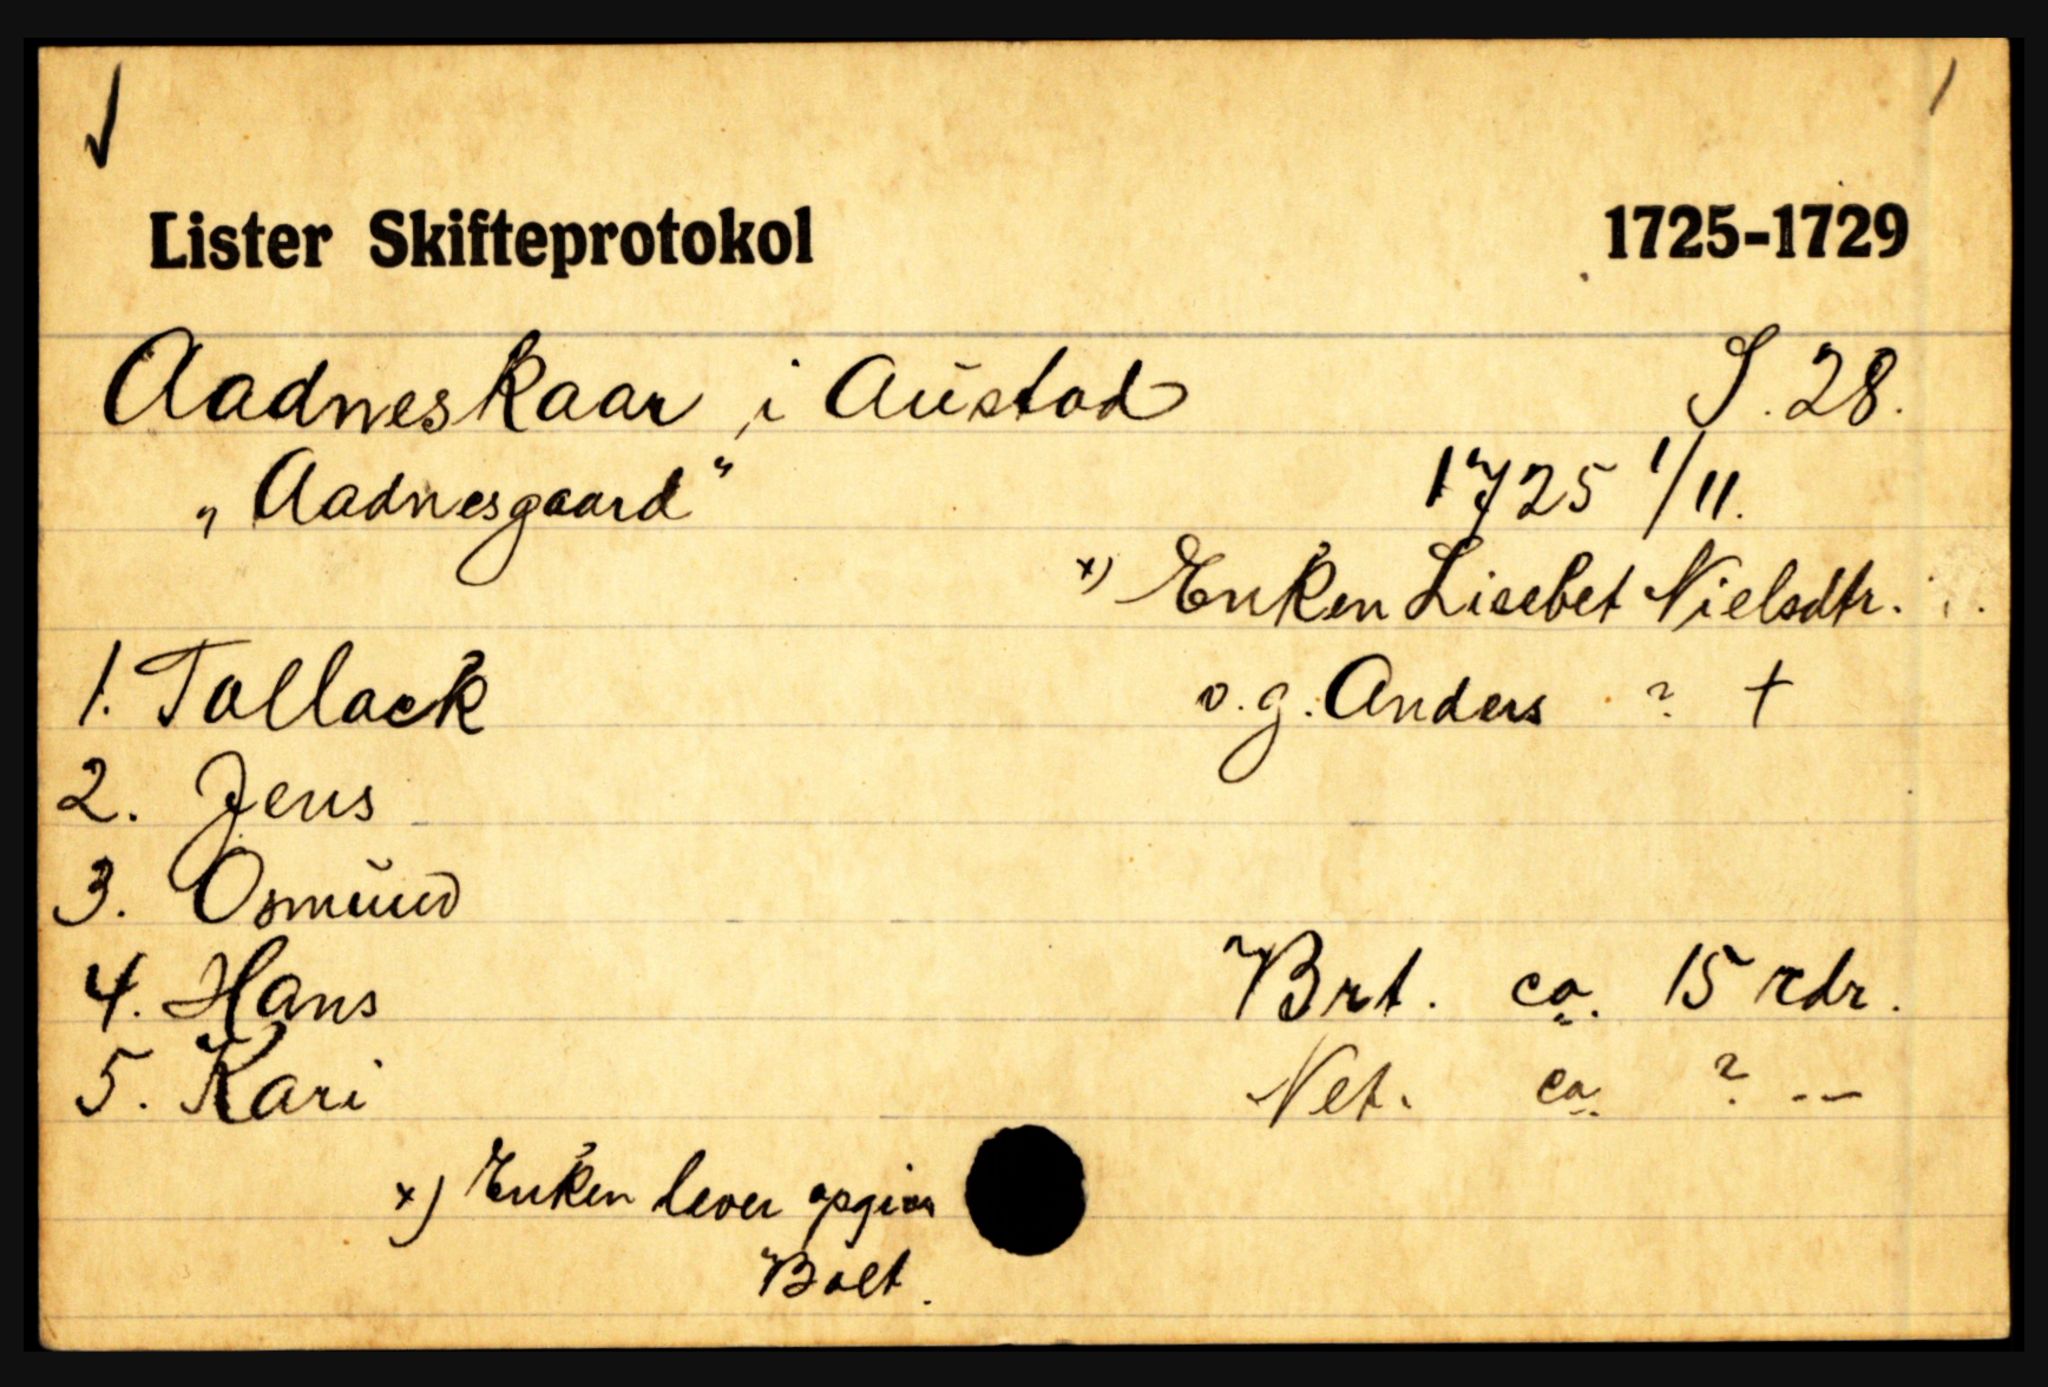 Lister Skifteprotokol 1725-1729
Aadneskaar, i Austad S. 28.
„Aadnesgaard" 1725 1/11.
x) Enken Lisebet Nielsdtr.
1. Tollack o.g. Anders ? +
2. Jens
3. Osmund
4. Hans Brt. ca. 15 rdr.
5. Kari Net. ca. ? --
x) Enken lever opgiver
Boet.